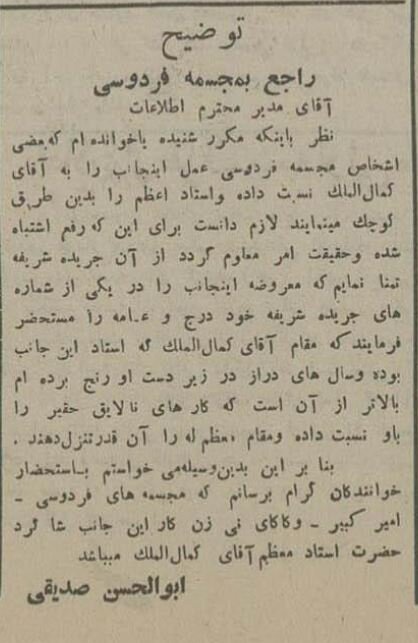 توضیح
راجع بمجسمه فردوسی
آقای مدیر محترم اطلاعات
نظر باینکه مکرر شنیده یاخوانده ام که بعضی
اشخاص مجسمه فردوسی عمل اینجانب را به آقای
کمال‌الملك نسبت داده واستاد اعظم را بدین طریق
کوچك مینمایند لازم دانست برای این که رفع اشتباه
شده وحقیقت امر معلوم گردد از آن جریده شریفه
تمنا نمایم که معروضه اینجانب را در یکی از شماره
های جریده شریفه خود درج و عامه را مستحضر
فرمایند که مقام آقای کمال‌الملك که استاد این جانب
بوده وسال های دراز در زیر دست او رنج برده ام
بالاتر از آن است که کار های نالایق حقیر را
باو نسبت داده ومقام معظم له را آن قدر تنزل دهند .
بنا بر این بدین‌وسیله می خواستم باستحضار
خوانندکان گرام برسانم که مجسمه های فردوسی ـ
امیر کبیر ـ وکاکای نی زن کار این جانب شا گرد
حضرت استاد معظم آقای کمال‌الملك میباشد
ابوالحسن صدیقی